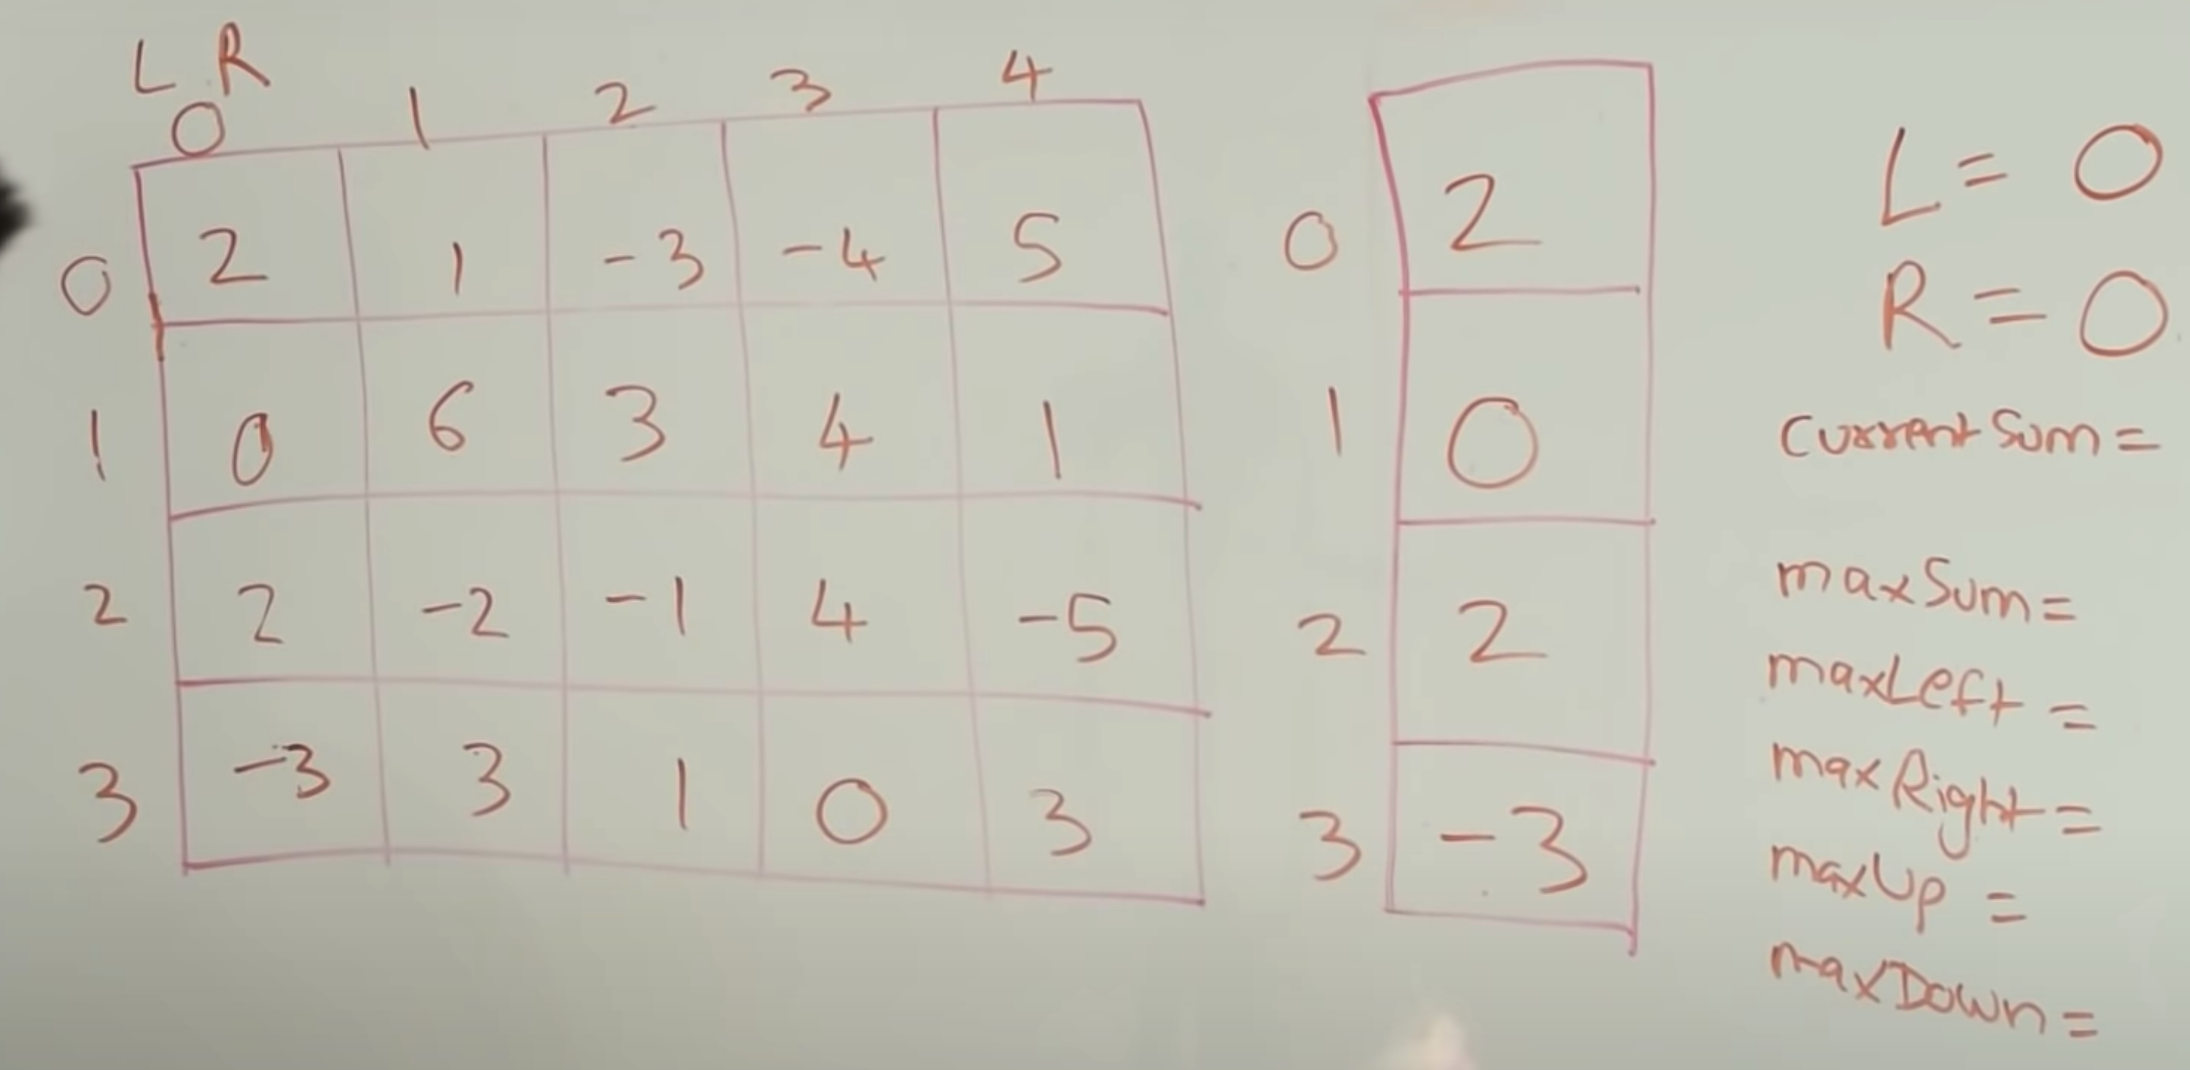 L R
0 1 2 3 4
0 2 1 -3 -4 5
1 0 6 3 4 1
2 2 -2 -1 4 -5
3 -3 3 1 0 3
0 2
1 0
2 2
3 -3
L = 0
R = 0
currentSum =
maxSum =
maxLeft =
maxRight =
maxUp =
maxDown =